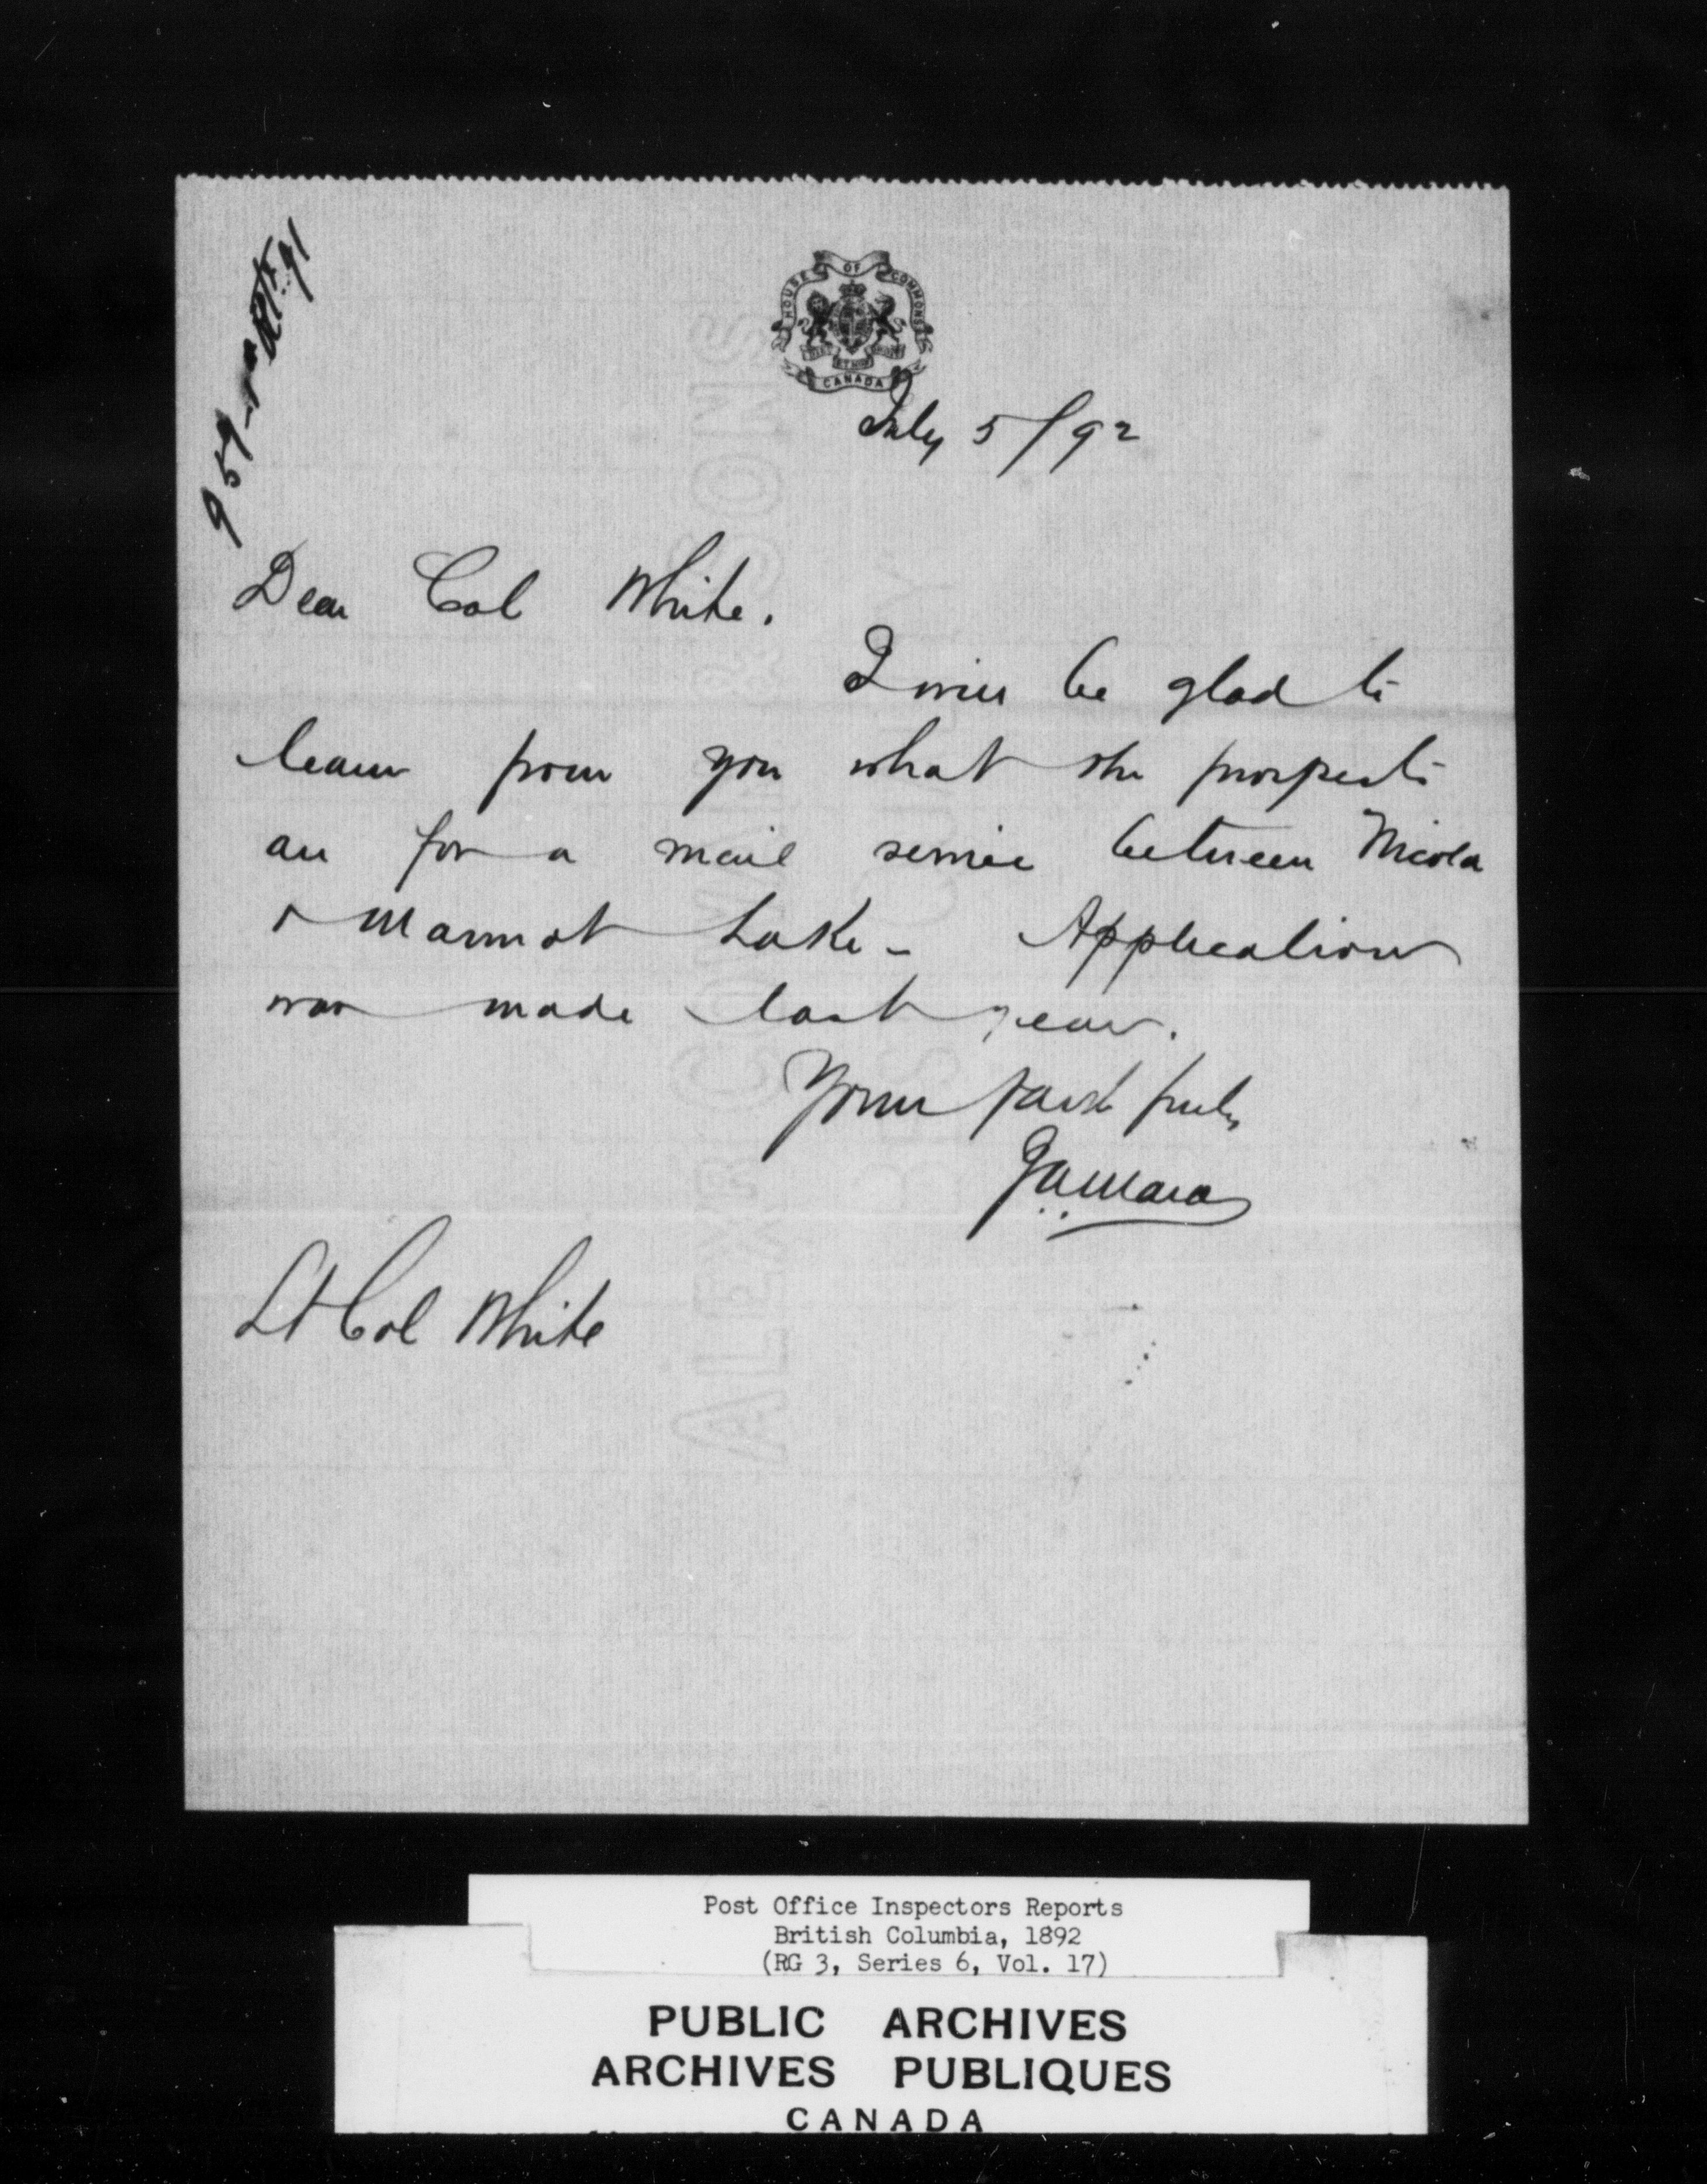 HOUSE OF COMMONS
CANADA
July 5/92
Dear Col White.
I will be glad to
learn from you what the prospects
are for a mail service between Nicola
& Mammot Lake - Application
was made last year.
Yours faithfully
JAMara
Lt Col White
Post Office Inspectors Reports
British Columbia, 1892
(RG 3, Series 6, Vol. 17)
PUBLIC ARCHIVES
ARCHIVES PUBLIQUES
CANADA